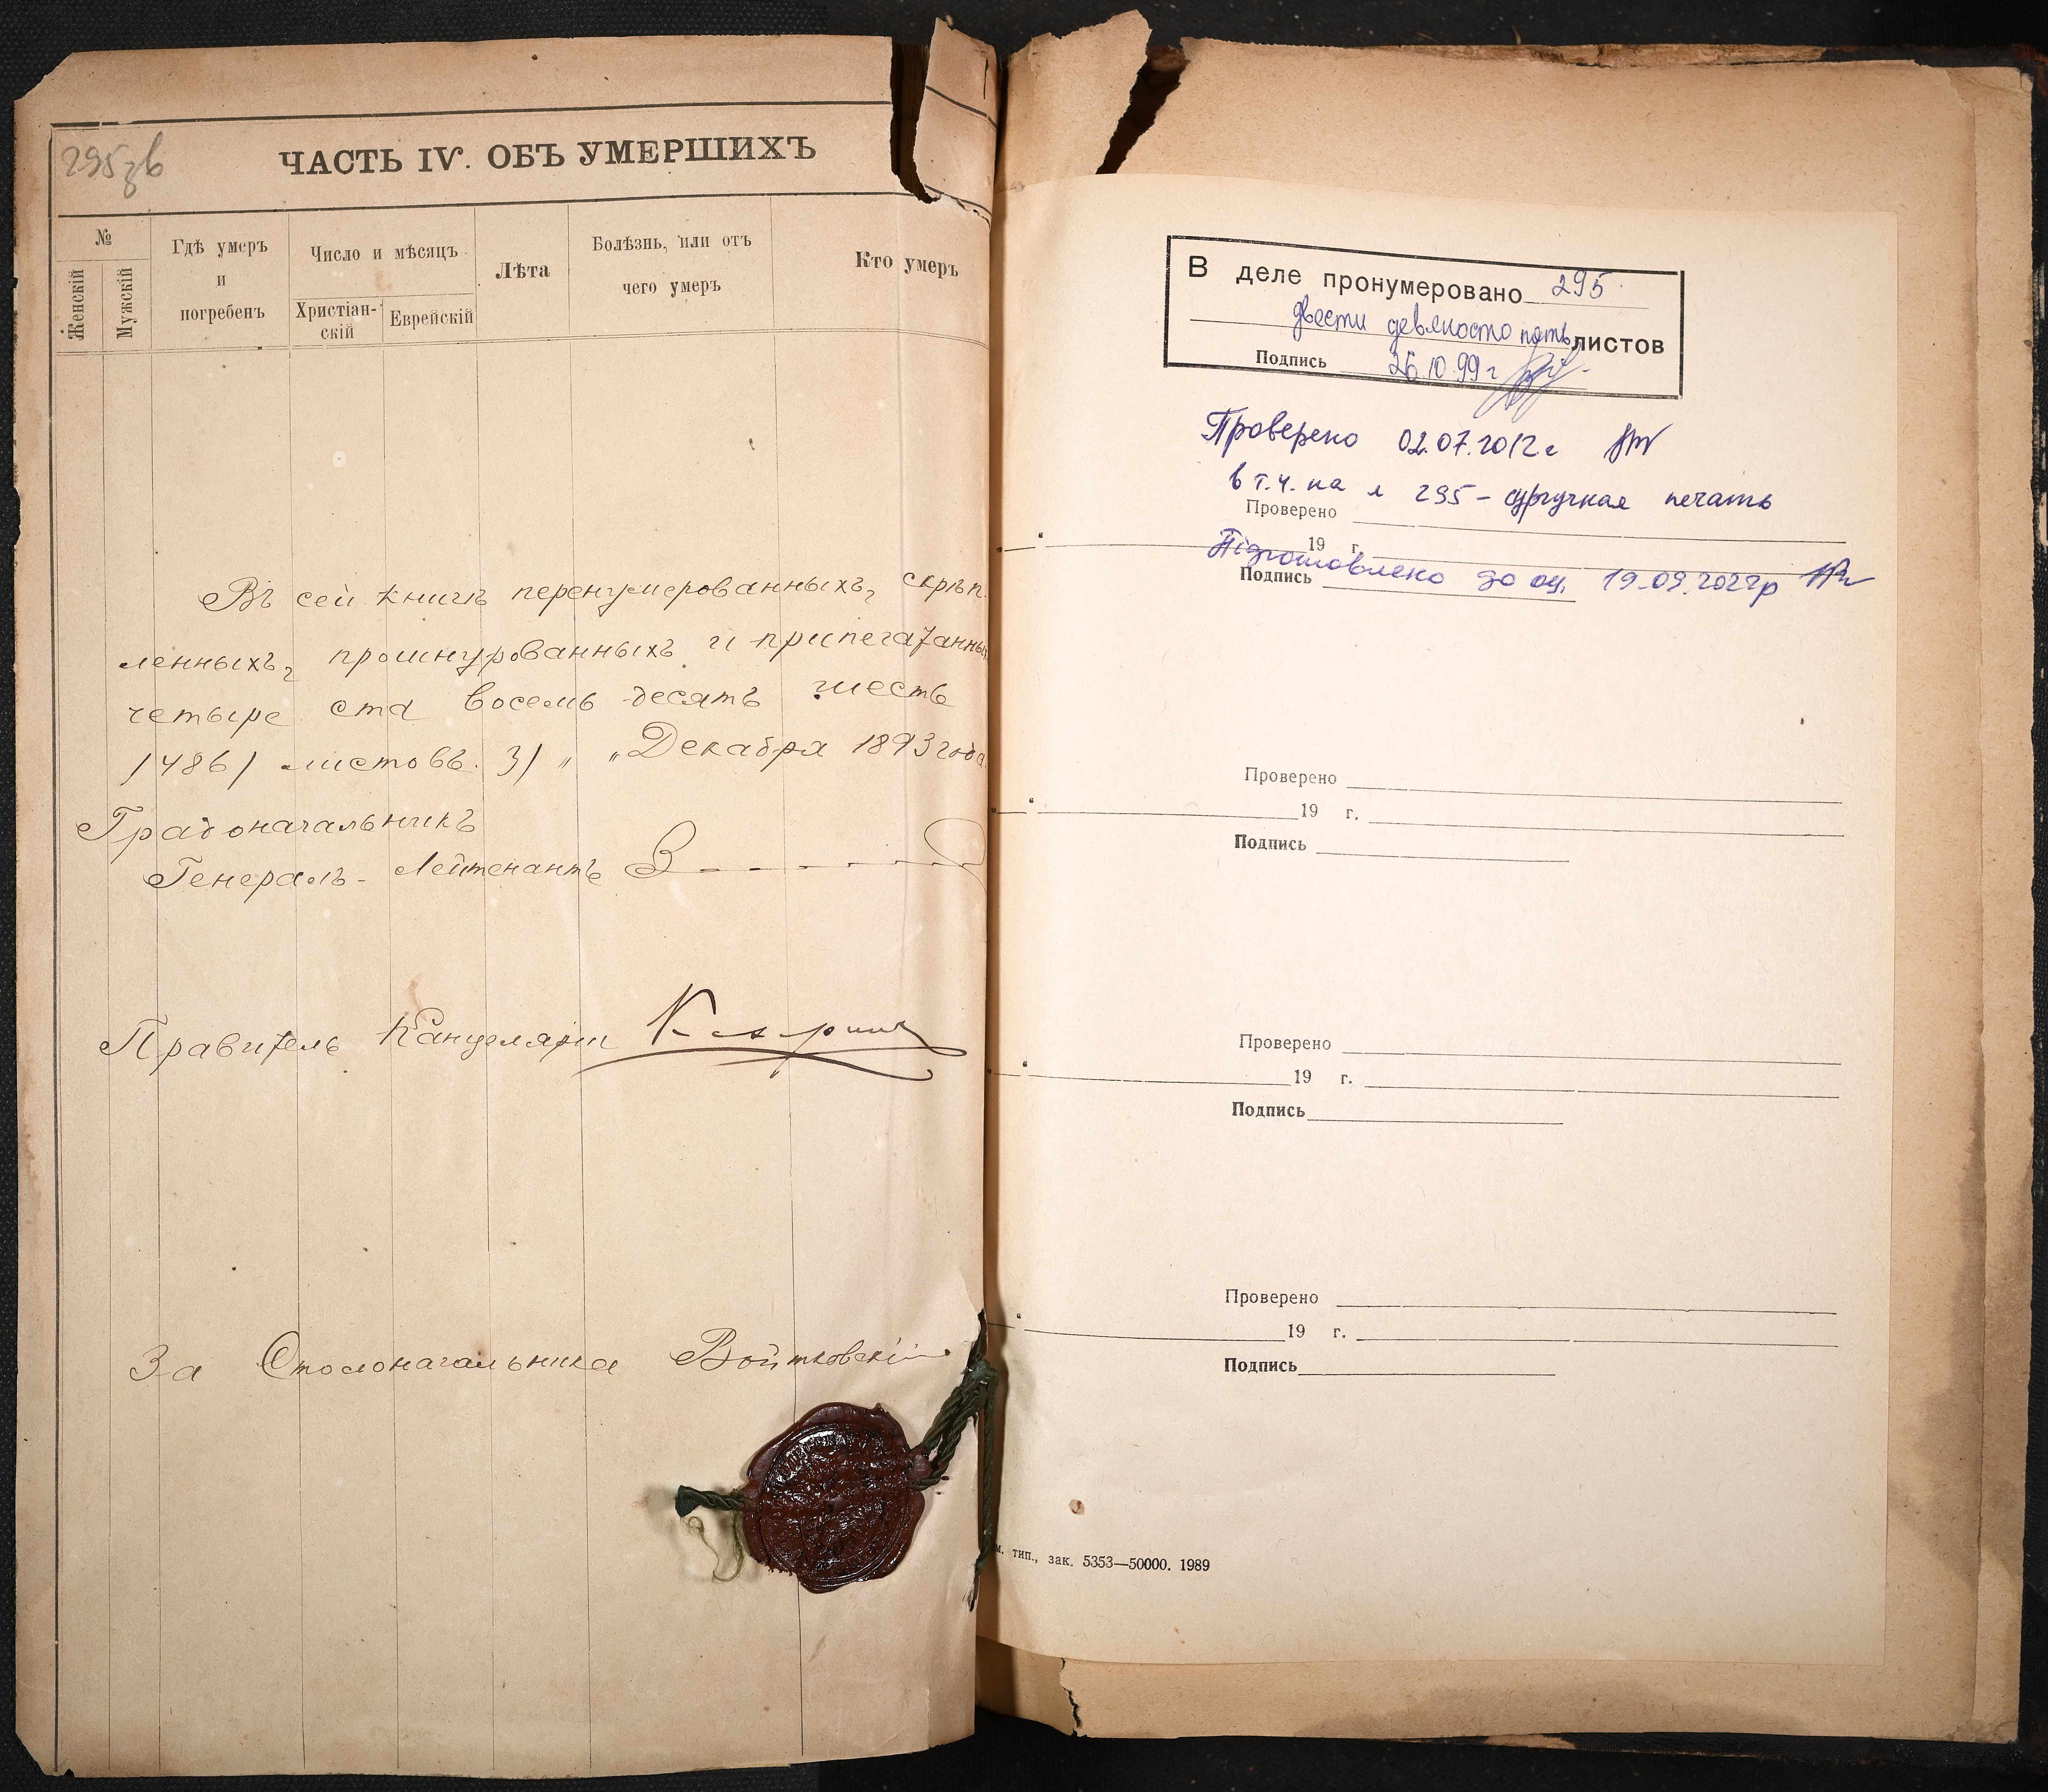 295зв
ЧАСТЬ IV. ОБЪ УМЕРШИХЪ
№
Женскій
Мужскій
Гдѣ умеръ
и
погребенъ
Число и мѣсяцъ
Христіан-
скій
Еврейскій
Лѣта
Болѣзнь, или отъ
чего умеръ
Кто умеръ
Въ сей книгѣ перенумерованныхъ, скрѣп
ленныхъ, прошнурованныхъ и припечатанныхъ
четыре ста восемь десятъ шесть
/486/ листовъ. 31 „ „ Декабря 1893 года.
Градоначальникъ
Генералъ-Лейтенантъ
Правитель Канцеляріи
За Столоначальника Войтковскій
В деле пронумеровано 295
двести девяносто пять листов
Подпись 26.10.99 г
Проверено 02.07.2012 г
в т.ч. на л 295 - сургучная печать
Проверено
19 г.
Підготовлено до оц. 19.09.2022р
Подпись
Проверено
19 г.
Подпись
Проверено
19 г.
Подпись
Проверено
19 г.
Подпись
тип., зак. 5353—50000. 1989